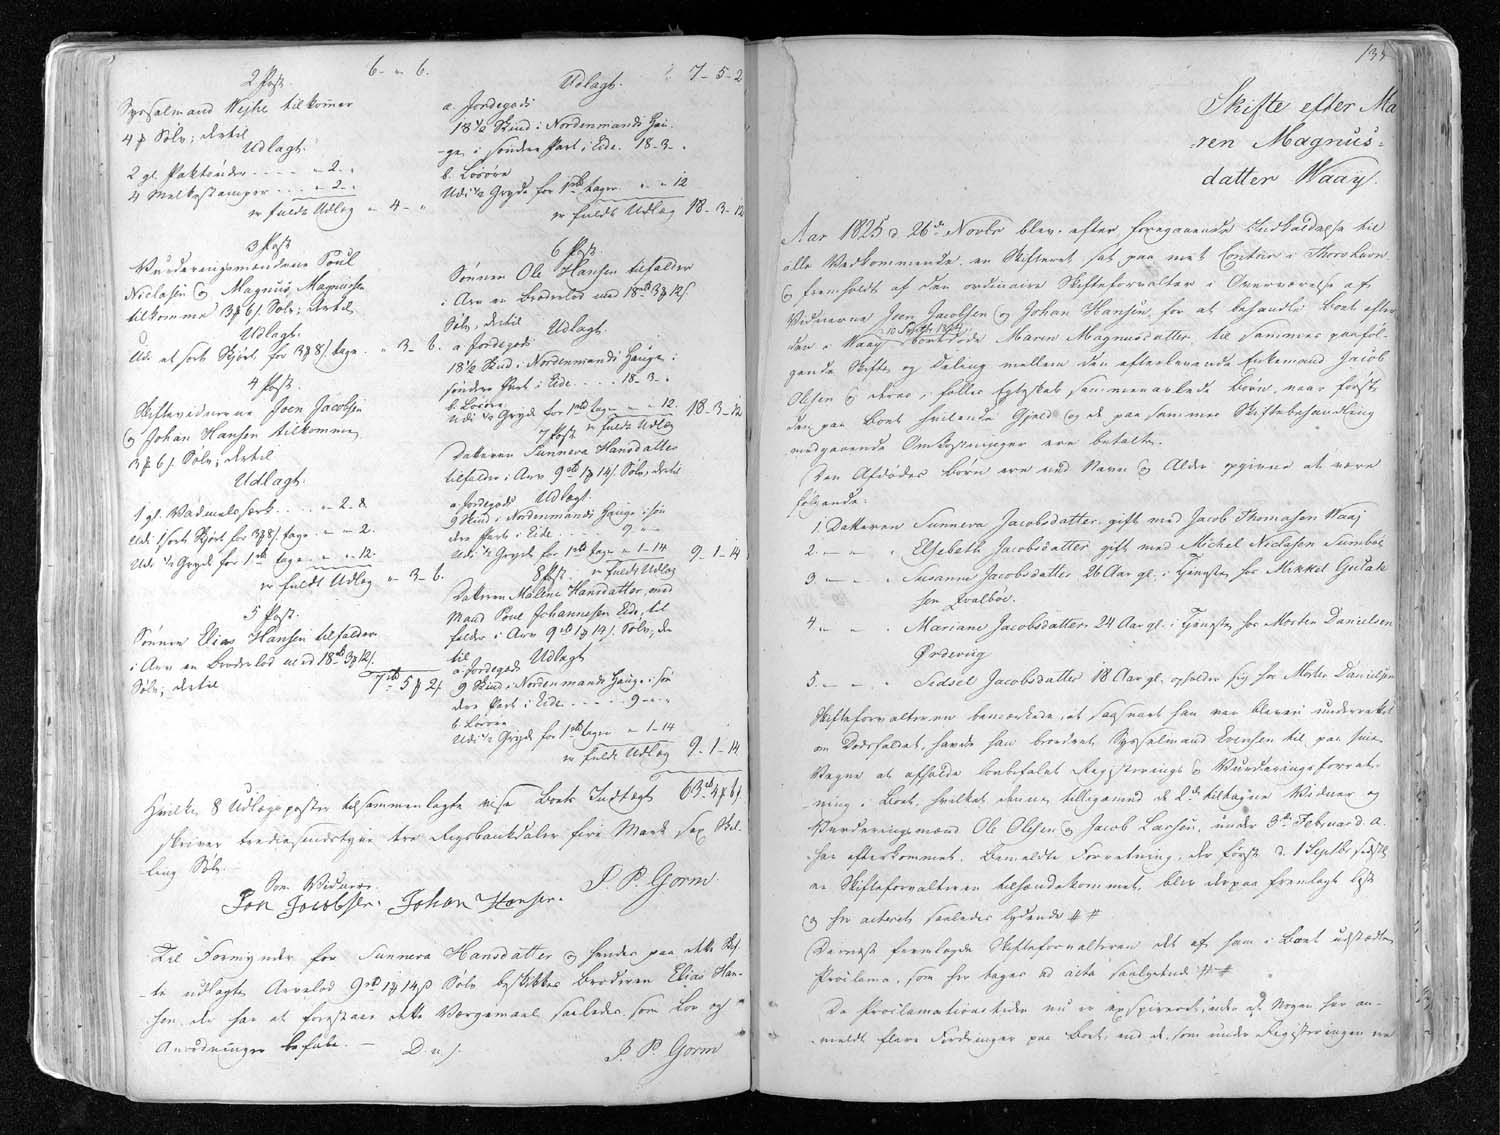 6 - " 6.
2 Post.
Sysselmand Weyhe tilkommer
4 ꝑ Sølv; dertil
Udlagt.
2 gl. Paktønder . . . " 2 - "
4 Melkestamper . . . " 2 - "
er fuldt Udlag " 4 - "
3 Post
Vurderingsmændene Poul
Niclasen og Magnus Magnussen
tilkomme 3 ꝑ 6 s. Sølv; dertil
Udlagt.
Udi et sort Skjørt for 3 ꝑ 8 s. tages . " 3 - 6.
4 Post.
Skiftevidnerne Joen Jacobsen
og Johan Hansen tilkommer
3 ꝑ 6 s. Sølv; dertil
Udlagt.
1 gl. Vadmels . . . " 2 - 8
Udi 1 sort Skjørt for 3 ꝑ 8 s. tages . " " 2.
Udi 1/2 Gryde for 1 rbd tages . " " 12.
er fuldt Udlag " 3 - 6.
5 Post.
Sønnen Elias Hansen tilfalder
i Arv en Broderlod med 18 rbd 3 ꝑ 12 s.
Sølv; dertil
7 rbd 5 ꝑ 2 s
7 - 5 - 2
Udlagt.
a. Jordegods
18 1/2 Skind i Nordenmands Hau-
ge, i søndre Part i Eide. 18 - 3 - .
b. Løsøre
Udi 1/2 Gryde for 1 rbd tages . " " 12
er fuldt Udlag 18 - 3 - 12
6 Post
Sønnen Ole Hansen tilfalder
i Arv en Broderlod med 18 rbd 3 ꝑ 12 s.
Sølv, dertil Udlagt.
a. Jordegods
18 1/2 Skind i Nordenmands Hauge i
søndre Part i Eide . . . . 18 - 3 .
b. Løsøre
Udi 1/2 Gryde for 1 rbd tages " " 12. 18 - 3 - 12
er fuldt Udlag
7 Post
Datteren Sunneva Hansdatter
tilfalder i Arv 9 rbd 1 ꝑ 14 s. Sølv, dertil
Udlagt.
a. Jordegods
9 Skind i Nordenmands Hauge i søn
dre Part i Eide . . . . 9 " "
Udi 1/2 Gryde for 1 rbd tages " 1 - 14 9 - 1 - 14
er fuldt Udlag
8 Post.
Datteren Maline Hansdatter, med
Mand Poul Johannesen Eide, til
falder i Arv 9 rbd 1 ꝑ 14 s. Sølv, der
til Udlagt
a. Jordegods
9 Skind i Nordenmands Hauge i søn
dre Part i Eide . . . . . 9 - " "
b. Løsøre
Udi 1/2 Gryde for 1 rbd tages " 1 - 14
er fuldt Udlag 9 - 1 - 14
Hvilke 8 Udlagsposter tilsammenlagte vise Boets Indtægt 63 rbd 4 ꝑ 6 s.
skriver trediesindstyve tre Rigsbankdaler fire Mark sex Skil-
ling Sølv.
Som Vidner.
Jon Jacobsen. Johan Hansen. P. P. Gorm
Til Formynder for Sunneva Hansdatter og hendes paa dette Skif-
te udlagte Arvelod 9 rbd 1 ꝑ 14 s Sølv beskikkes Broderen Elias Han-
sen, der har at forestaae dette Værgemaal saaledes som Lov og
Anordninger befale. — D. u. s.
P. P. Gorm
135
Skifte efter Ma
ren Magnus-
datter Waaÿ.
Aar 1825 d. 26de Novbr blev efter foregaaende Indkaldelse til
alle Vedkommende en Skifteret sat paa mit Contoir i Thorshavn
og fremholdt af den ordinaire Skifteforvalter i Overværelse af
Vidnerne Joen Jacobsen og Johan Hansen, for at behandle Boet efter
10 Septbr. 1824
den i Waaÿ bortdøde Maren Magnusdatter, til sammes paaføl-
gende Skifte og Deling mellem den efterlevende Enkemand Jacob
Olsen og deres i fælles Egteskab sammenavlede Børn, naar først
den paa Boet hvilende Gjeld og de paa sammes Skiftebehandling
medgaaende Omkostninger ere betalte.
Den Afdødes Børn ere ved Navn og Alder opgivne at være
følgende.
1. Datteren Sunneva Jacobsdatter gift med Jacob Thomasen Waaj
2. — " . Elsebeth Jacobsdatter gift med Michel Niclasen Sumbøe
3 — " . Susanne Jacobsdatter 26 Aar gl. i Tjeneste hos Mikkel Gutte
sen Qvalbøe.
4 — " . Mariane Jacobsdatter 24 Aar gl. i Tjeneste hos Morten Danielsen
Ørdevig
5. — " . Sidsel Jacobsdatter 18 Aar gl. opholder sig hos Morten Danielsen
Skifteforvalteren bemærkede, at saasnart han var bleven underrettet
om Dødsfaldet, havde han beordret Sysselmand Evensen til paa sine
Vegne at afholde lovbefalet Registerings og Vurderingsforret-
ning i Boet, hvilket denne tilligemed de 2de tiltagne Vidner og
Vurderingsmænd Ole Olesen og Jacob Larsen, under 3de Februar d. A.
har efterkommet. Bemeldte Forretning, der først d. 1 Septbr sidstl
er Skifteforvalteren tilhændekommet, blev derpaa fremlagt læst
og her acteret saaledes lydende # #
Dernæst fremlagde Skifteforvalteren det af ham i Boet udstædte
Proclama, som her tages ad acta saalydende # #
Da Proclamationstiden nu er exspireret, uden at Nogen har an-
meldt flere Fordringer paa Boet, end de, som under Registeringen ere